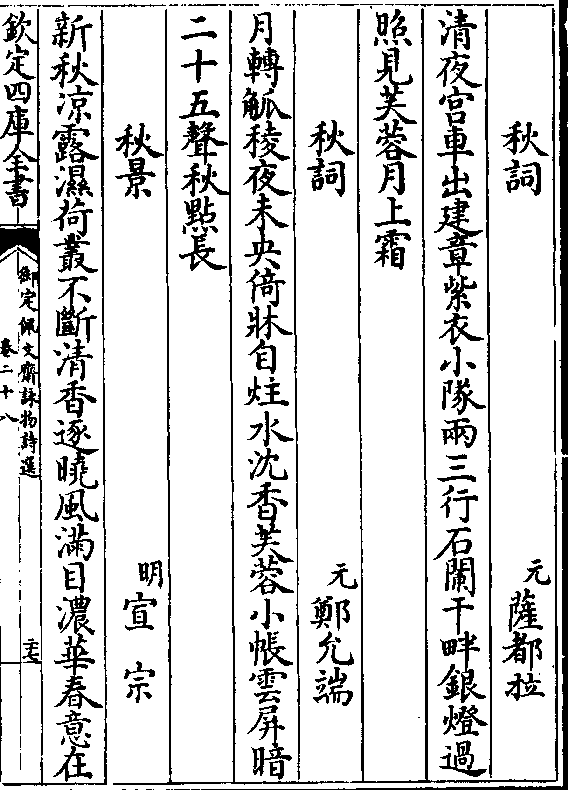 秋詞
元薩都拉
清夜宫車出建章紫衣小隊兩三行石闌干畔銀燈過
照見芙蓉月上霜
秋詞
元鄭允端
月轉觚稜夜未央倚牀自炷水沈香芙蓉小帳雲屏暗
二十五聲秋點長
秋景
明宣宗
新秋凉露濕荷叢不斷清香逐曉風滿目濃華春意在
欽定四庫全書
御定佩文齋詠物詩選
卷二十八